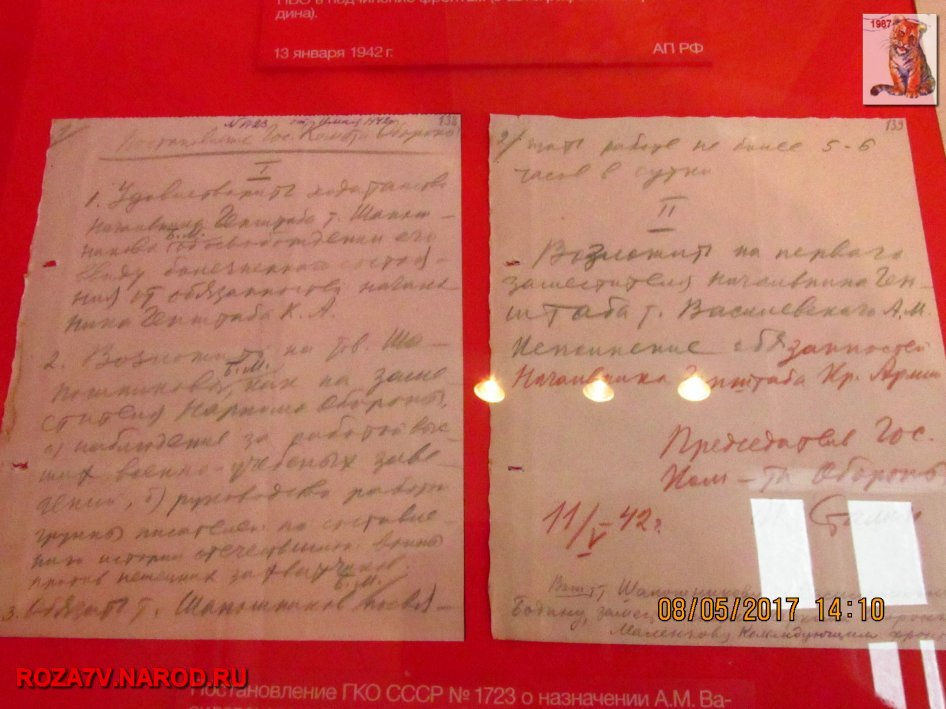 ПВО в подчинение фронтам
дина).
13 января 1942 г. АП РФ
1987
138
Постановление Гос. Комит. Обороны
I
1. Удовлетворить ходатайство
начальника Генштаба т. Шапош-
никова Б.М. об освобождении его
ввиду болезненного состоя-
ния от обязанностей началь-
ника Генштаба К. А.
2. Возложить на тов. Ша-
пошникова Б.М., как на заме-
стителя Наркома Обороны,
а) наблюдение за работой выс-
ших военно-учебных заве-
дений, б) руководство работой
группы писателей по составле-
нию истории отечественной войны
против немецких захватчиков.
3. Обязать т. Шапошникова Б.М. посвя-
139
щать работе не более 5-6
часов в сутки
II
Возложить на первого
заместителя начальника Ген-
штаба т. Василевского А.М.
исполнение обязанностей
Начальника Генштаба Кр. Армии
Председатель Гос.
Ком-та Обороны
11/V 42 г. Сталин
Шапошникову
Бодину, замес
Маленкову Командующим
08/05/2017 14:10
ROZA7V.NAROD.RU
Постановление ГКО СССР № 1723 о назначении А.М. Ва-